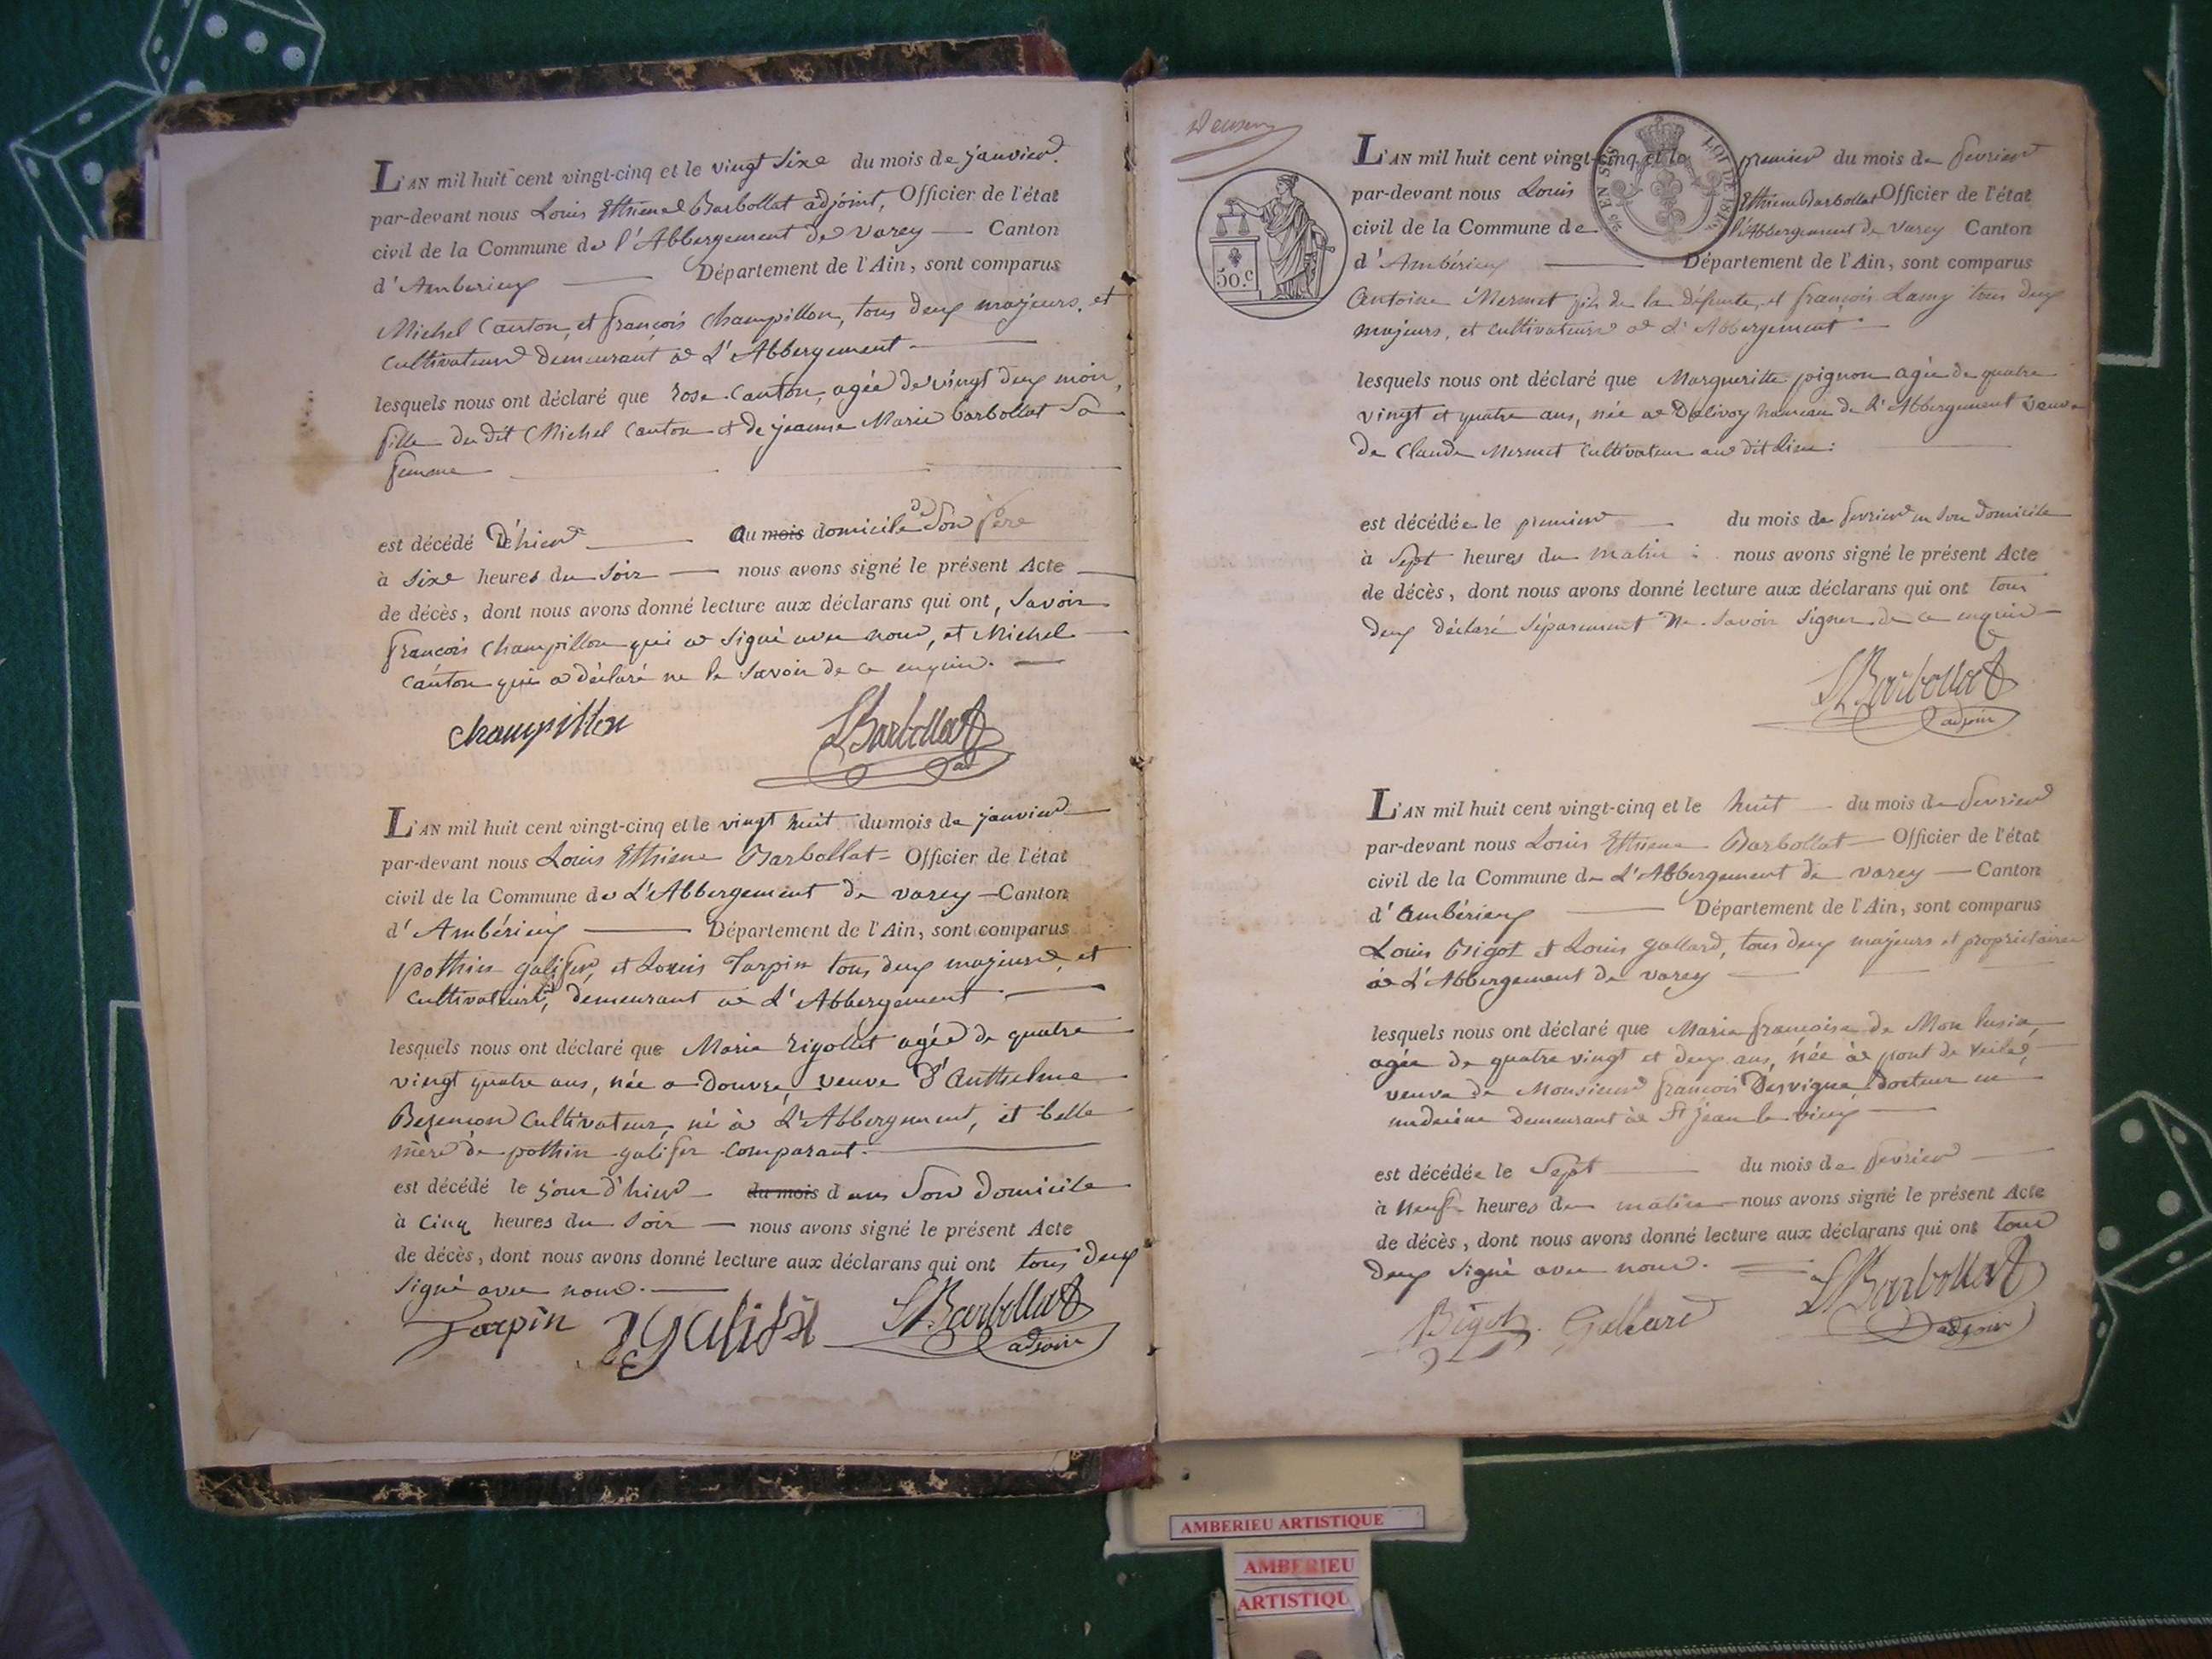 L'AN mil huit cent vingt-cinq et le vingt Sixe du mois de janvier
par-devant nous Louis Ethiene Barbollat adjoint, Officier de l'état
civil de la Commune de l'Abbergement de varey — Canton
d'Amberieux — Département de l'Ain, sont comparus
Michel Canton, et françois Champillon, tous deux majeurs, et
Cultivateurs demeurant a L'Abbergement —
lesquels nous ont déclaré que rose Canton, agée de vingt deux mois,
fille du dit Michel Canton et de jeanne Marie barbollat Sa
femme
est décédé D'hier — au mois domicile de Son Père
à Sixe heures du Soir — nous avons signé le présent Acte
de décès, dont nous avons donné lecture aux déclarans qui ont, Savoir
françois Champillon qui a Signé avec nous, et Michel
Canton qui a déclaré ne le Savoir de ce enquis. —
Champillon LBarbollat
ad
L'AN mil huit cent vingt-cinq et le vingt huit du mois de janvier
par-devant nous Louis Ethiene Barbollat - Officier de l'état
civil de la Commune de L'Abbergement de varey — Canton
d'Ambérieux — Département de l'Ain, sont comparus
pothin galifer, et Louis Tarpin tous deux majeurs, et
Cultivateurs, demeurant a L'Abbergement —
lesquels nous ont déclaré que Marie rigollet agée de quatre
vingt quatre ans, née a Douvre, veuve d'Anthelme
Besençon Cultivateur, né à L'Abbergement, et belle
mère de pothin galifer comparant. —
est décédé le jour d'hier — du mois dans Son Domicile
à Cinq heures du Soir — nous avons signé le présent Acte
de décès, dont nous avons donné lecture aux déclarans qui ont tous deux
Signé avec nous. —
Tarpin Galifer LBarbollat
adjoint
L'AN mil huit cent vingt-cinq et le premier du mois de fevrier
par-devant nous Louis Ethiene Barbollat Officier de l'état
civil de la Commune de l'Abbergement de Varey Canton
d'Ambérieux — Département de l'Ain, sont comparus
50.c
LOI DE 1816
Antoine Mermet fils de la défunte, et françois Lamy tous deux
majeurs, et Cultivateurs a L'Abbergement —
lesquels nous ont déclaré que Margueritte joignon agée de quatre
vingt et quatre ans, née a Dalivoy hameau de L'Abbergement veuve
de Claude Mermet Cultivateur au dit Lieu :
est décédée le premier — du mois de fevrier en Son Domicile
à Sept heures du matin : nous avons signé le présent Acte
de décès, dont nous avons donné lecture aux déclarans qui ont tous
deux déclaré Séparement ne Savoir Signer de ce enquis —
LBarbollat
adjoint
L'AN mil huit cent vingt-cinq et le huit — du mois de fevrier
par-devant nous Louis Ethiene Barbollat — Officier de l'état
civil de la Commune de L'Abbergement de varey — Canton
d'Ambérieux — Département de l'Ain, sont comparus
Louis Bigot et Louis gallard, tous deux majeurs et propriétaires
a L'Abbergement de varey —
lesquels nous ont déclaré que Marie françoise de Mon lusin,
agée de quatre vingt et deux ans, née a pont de veile,
veuve de Monsieur françois Desvigne, docteur en
medecine demeurant a St jean le vieux —
est décédée le Sept — du mois de fevrier —
à Neuf heures du matin — nous avons signé le présent Acte
de décès, dont nous avons donné lecture aux déclarans qui ont tous
deux Signé avec nous. —
Bigot Gallard LBarbollat
adjoint
AMBERIEU ARTISTIQUE
AMBERIEU
ARTISTIQU